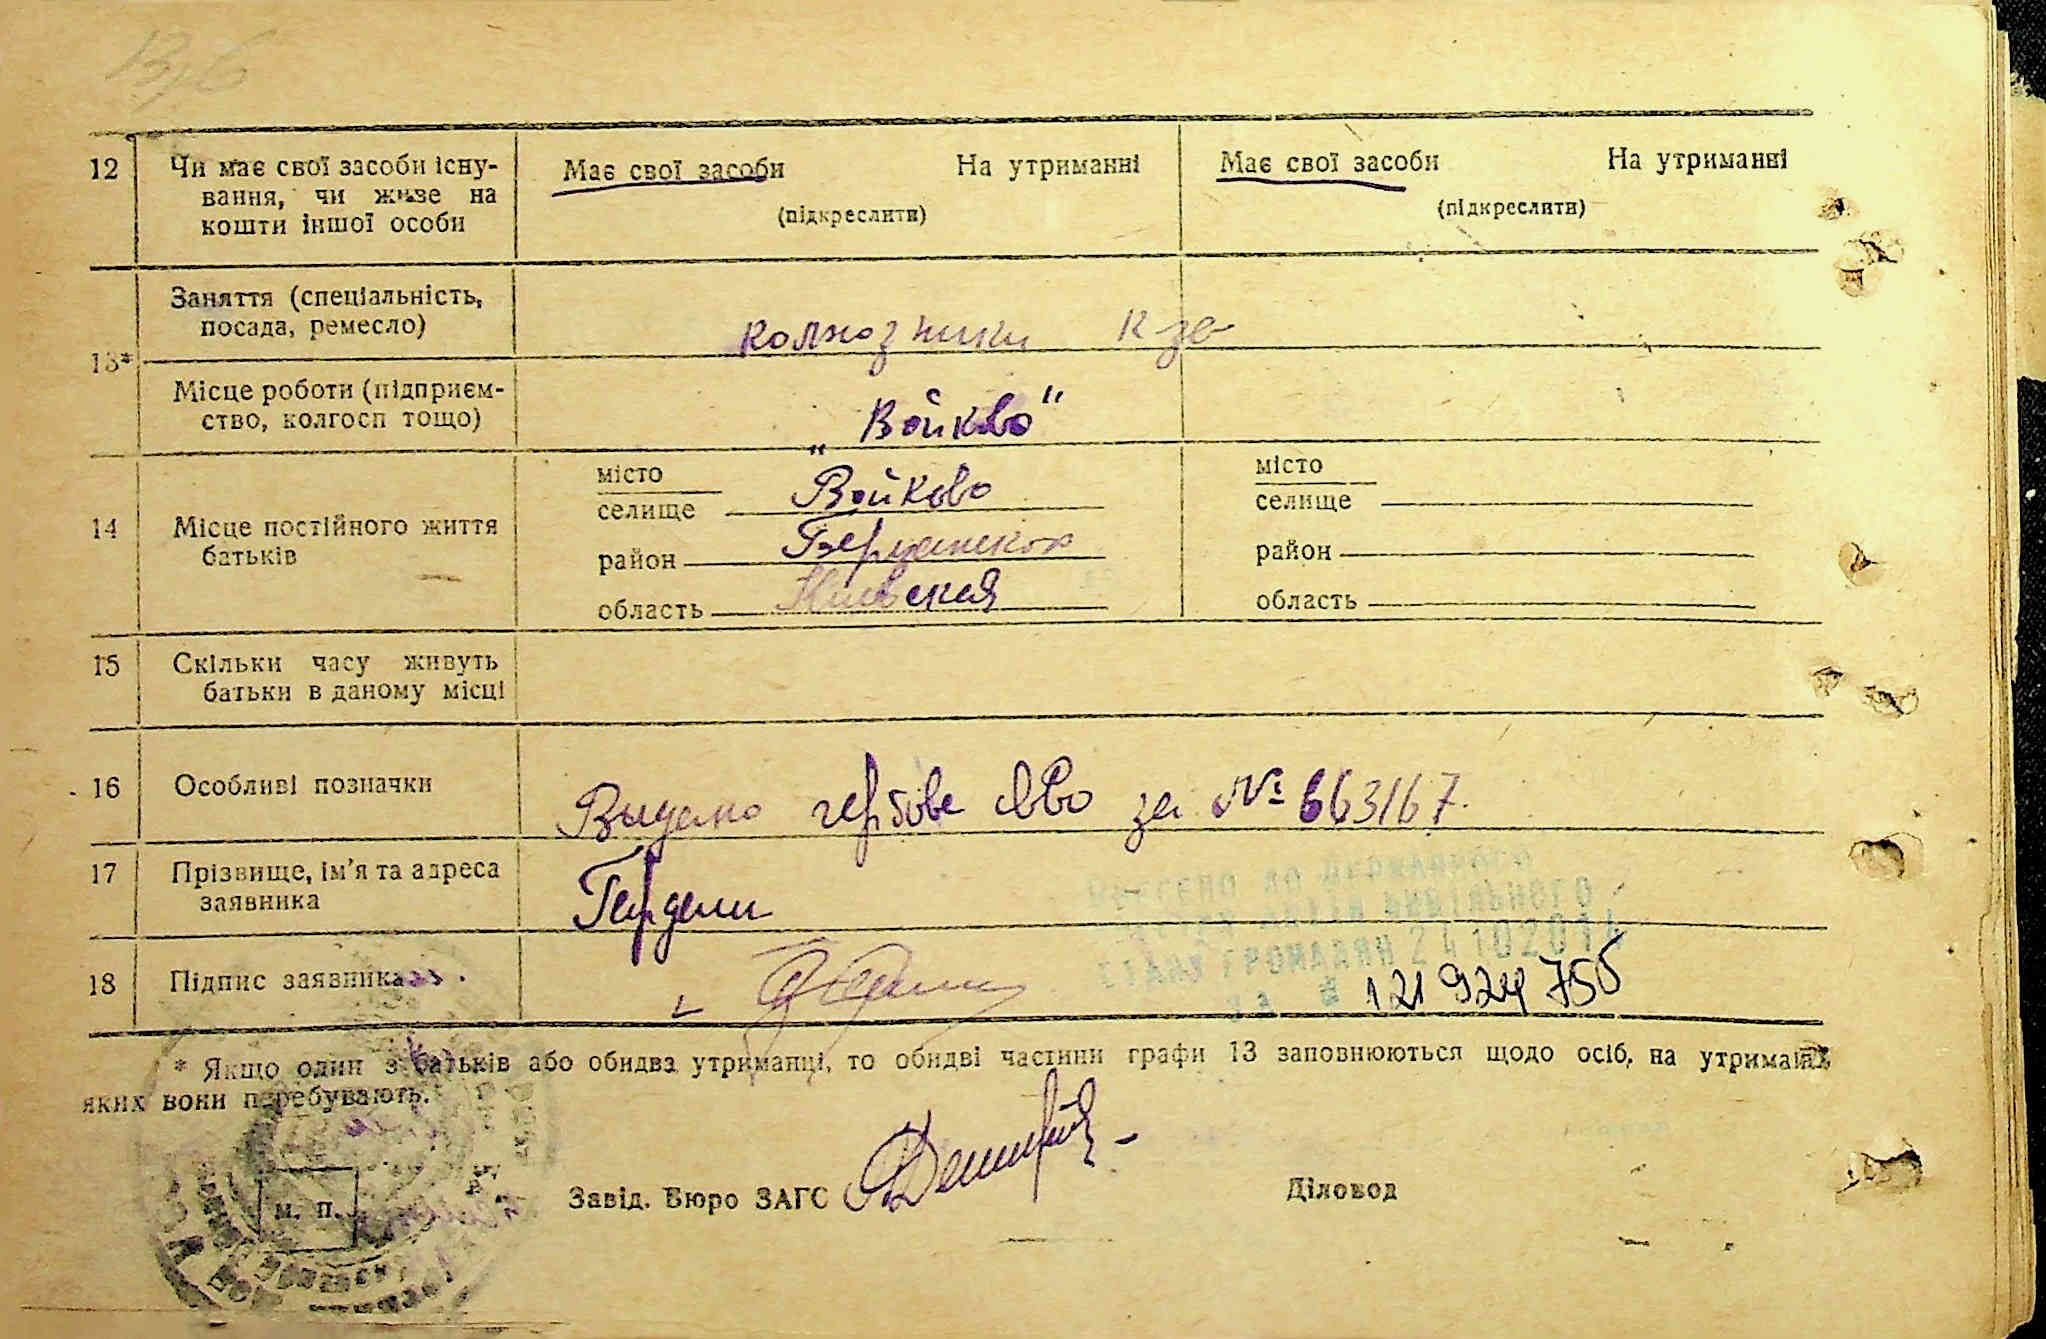 12 Чи має свої засоби існу-
вання, чи живе на
кошти іншої особи
Має свої засоби На утриманні
(підкреслити)
Має свої засоби На утриманні
(підкреслити)
13*
Заняття (спеціальність,
посада, ремесло)
колхозники к-за
Місце роботи (підприєм-
ство, колгосп тощо)
„Войково"
14 Місце постійного життя
батьків
місто
селище Войково
район
область
місто
селище
район
область
15 Скільки часу живуть
батьки в даному місці
16 Особливі позначки
Выдано гербове св-во за № 663167.
17 Прізвище, ім'я та адреса
заявника
18 Підпис заявника
ДО ДЕРЖАВНОГО
АКТІВ ЦИВІЛЬНОГО
СТАНУ ГРОМАДЯН 24 10 2014
ЗА № 121 924 756
* Якщо один з батьків або обидва утриманці, то обидві частини графи 13 заповнюються щодо осіб, на утриманні
яких вони перебувають.
м. п.
Завід. Бюро ЗАГС
Діловод